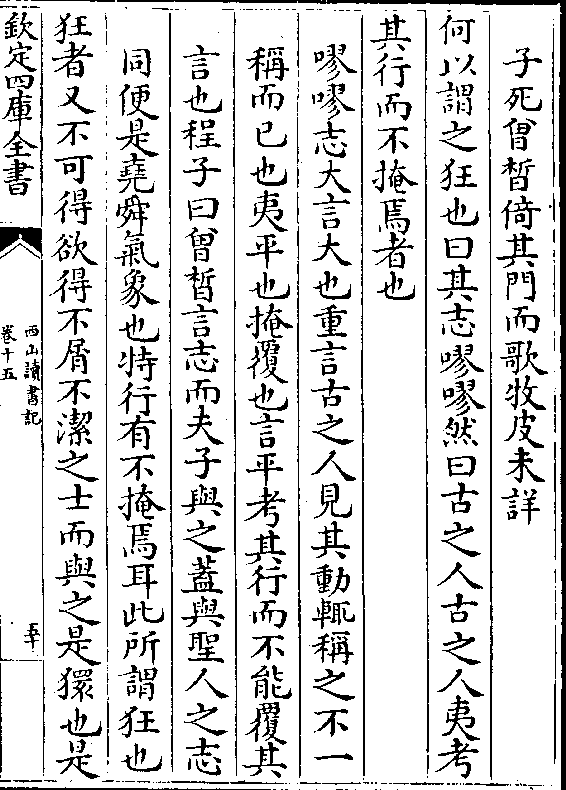 子死曾晳倚其門而歌牧皮未詳
何以謂之狂也曰其志嘐嘐然曰古之人古之人夷考
其行而不掩焉者也
嘐嘐志大言大也重言古之人見其動輒稱之不一
稱而已也夷平也掩覆也言平考其行而不能覆其
言也程子曰曾晳言志而夫子與之蓋與聖人之志
同便是堯舜氣象也特行有不掩焉耳此所謂狂也
狂者又不可得欲得不屑不潔之士而與之是獧也是
欽定四庫全書
西山讀書記
卷十五